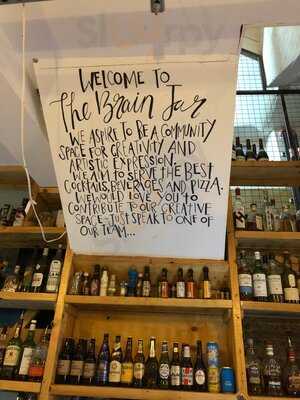 WELCOME TO
The Brain Jar
WE ASPIRE TO BE A COMMUNITY
SPACE FOR CREATIVITY AND
ARTISTIC EXPRESSION.
WE AIM TO SERVE THE BEST
COCKTAILS, BEVERAGES AND PIZZA.
IF WE'D LOVE YOU TO
CONTRIBUTE TO OUR CREATIVE
SPACE JUST SPEAK TO ONE OF
OUR TEAM...